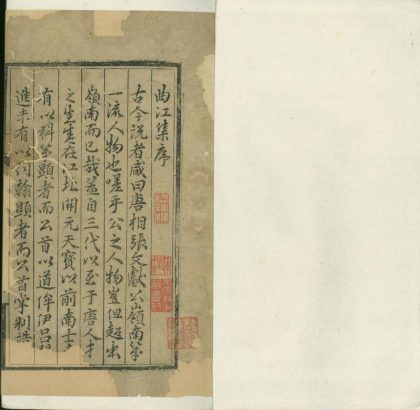 曲江集序
古今說者咸曰唐相張文獻公嶺南第
一流人物也嗟乎公之人物豈但超出
嶺南而已哉蓋自三代以至于唐人才
之生盛在江北開元天寶以前南士未
有以科第顯者而公首以道侔伊呂科
進未有以詞翰顯者而公首掌制誥